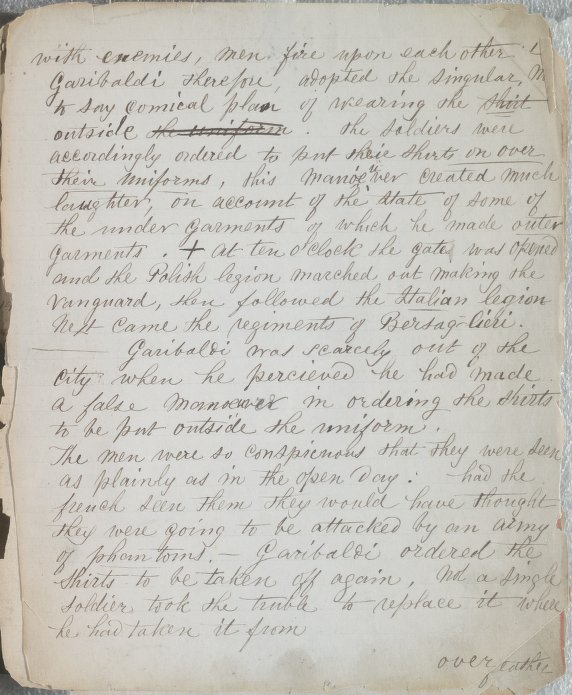 with enemies, men fire upon each other
Garibaldi therefore, adopted the singular,
to say comical plan of wearing the shirt
outside the uniform. the soldiers were
accordingly ordered to put their shirts on over
their uniforms, this Manoeuver created much
laughter, on account of the state of some of
the under garments of which he made outer
garments. + at ten o'clock the gate was opened
and the Polish legion marched out making the
vanguard, then followed the Italian legion
Next came the regiments of Bersag-lieri.
Garibaldi was scarcely out of the
city when he percieved he had made
a false in ordering the shirts
to be put outside the uniform.
The men were so conspicuous that they were seen
as plainly as in the open day: had the
french seen them they would have thought
they were going to be attacked by an army
of phantoms. - Garibaldi ordered the
shirts to be taken off again, Not a single
soldier took the truble to replace it where
he had taken it from
over